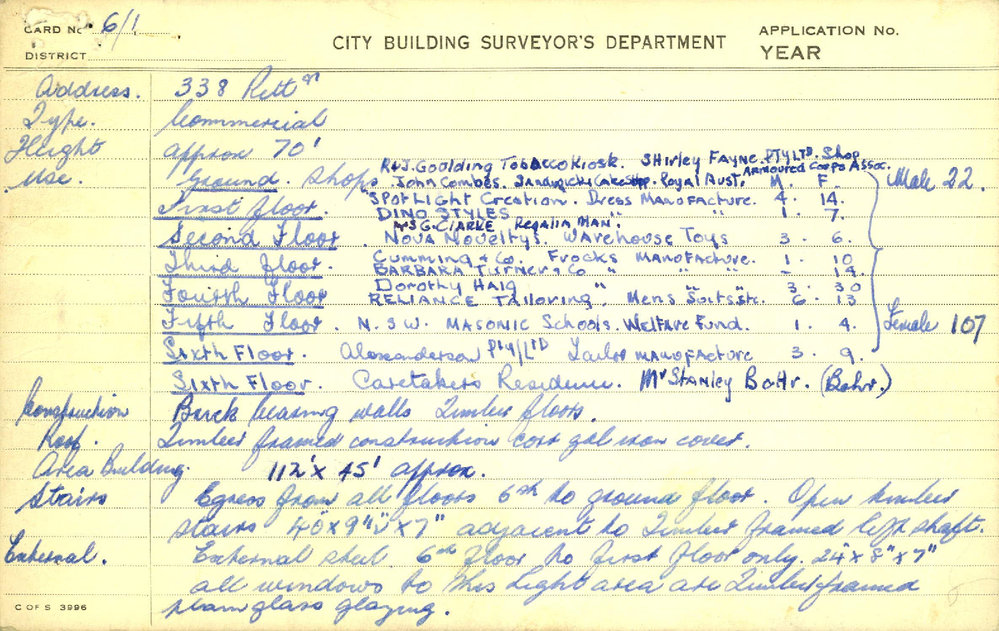 CARD No. 6/1
CITY BUILDING SURVEYOR'S DEPARTMENT
APPLICATION No.
DISTRICT
YEAR
Address. 338 Pitt St
Type. Commercial
Height approx 70'
R & J. Goolding Tobacco Kiosk. Shirley Fayne. Pty Ltd. Shop
Use. Ground. Shops John Combes. Sandwich & Cake Shop. Royal Aust. Armoured Corps Assoc. M. F. Male 22.
First floor. Spotlight Creation. Dress Manufacture. 4. 14.
DINO STYLES " " 1. 7.
Mrs G. CLARKE Regalia MAN.
Second Floor. Nova Noveltys. Warehouse Toys 3. 6.
Third floor. Cumming & Co. Frocks Manufacture. 1. 10
BARBARA TURNER & Co " " - 14.
Fourth Floor Dorothy Haig " " 3. 30
RELIANCE Tailoring, Mens Suits etc. 6. 13
Fifth Floor. N.S.W. MASONIC Schools. Welfare Fund. 1. 4. Female 107
Sixth Floor. Alexanderson Pty/Ltd Tailor Manufacture 3. 9.
Sixth Floor. Caretakers Residence. Mr Stanley Bahr. (Bahr.)
Construction Brick bearing walls Timber floors.
Roof. Timber framed construction corr gal iron cover.
Area Building. 112' x 45' approx.
Stairs Egress from all floors 6th to ground floor. Open timber
stairs 40" x 9" x 7" adjacent to Timber framed lift shaft.
External. External steel 6th floor to first floor only. 24" x 8" x 7"
all windows to this light area are Timber framed
plain glass glazing.
C OF S 3996